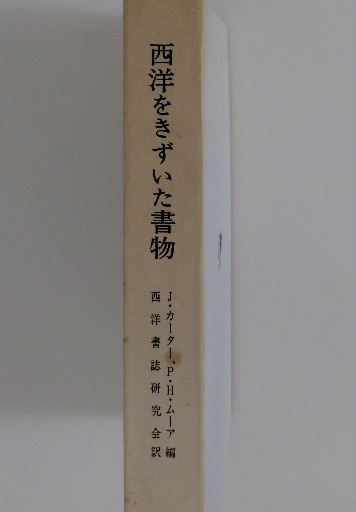 西洋をきずいた書物
J・カーター、P・H・ムーア編
西洋書誌研究会訳